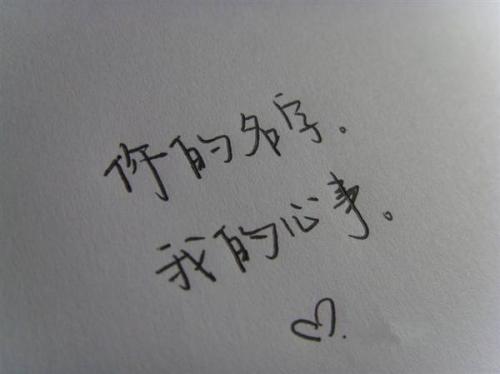 你的名字。
我的心事。
♡.